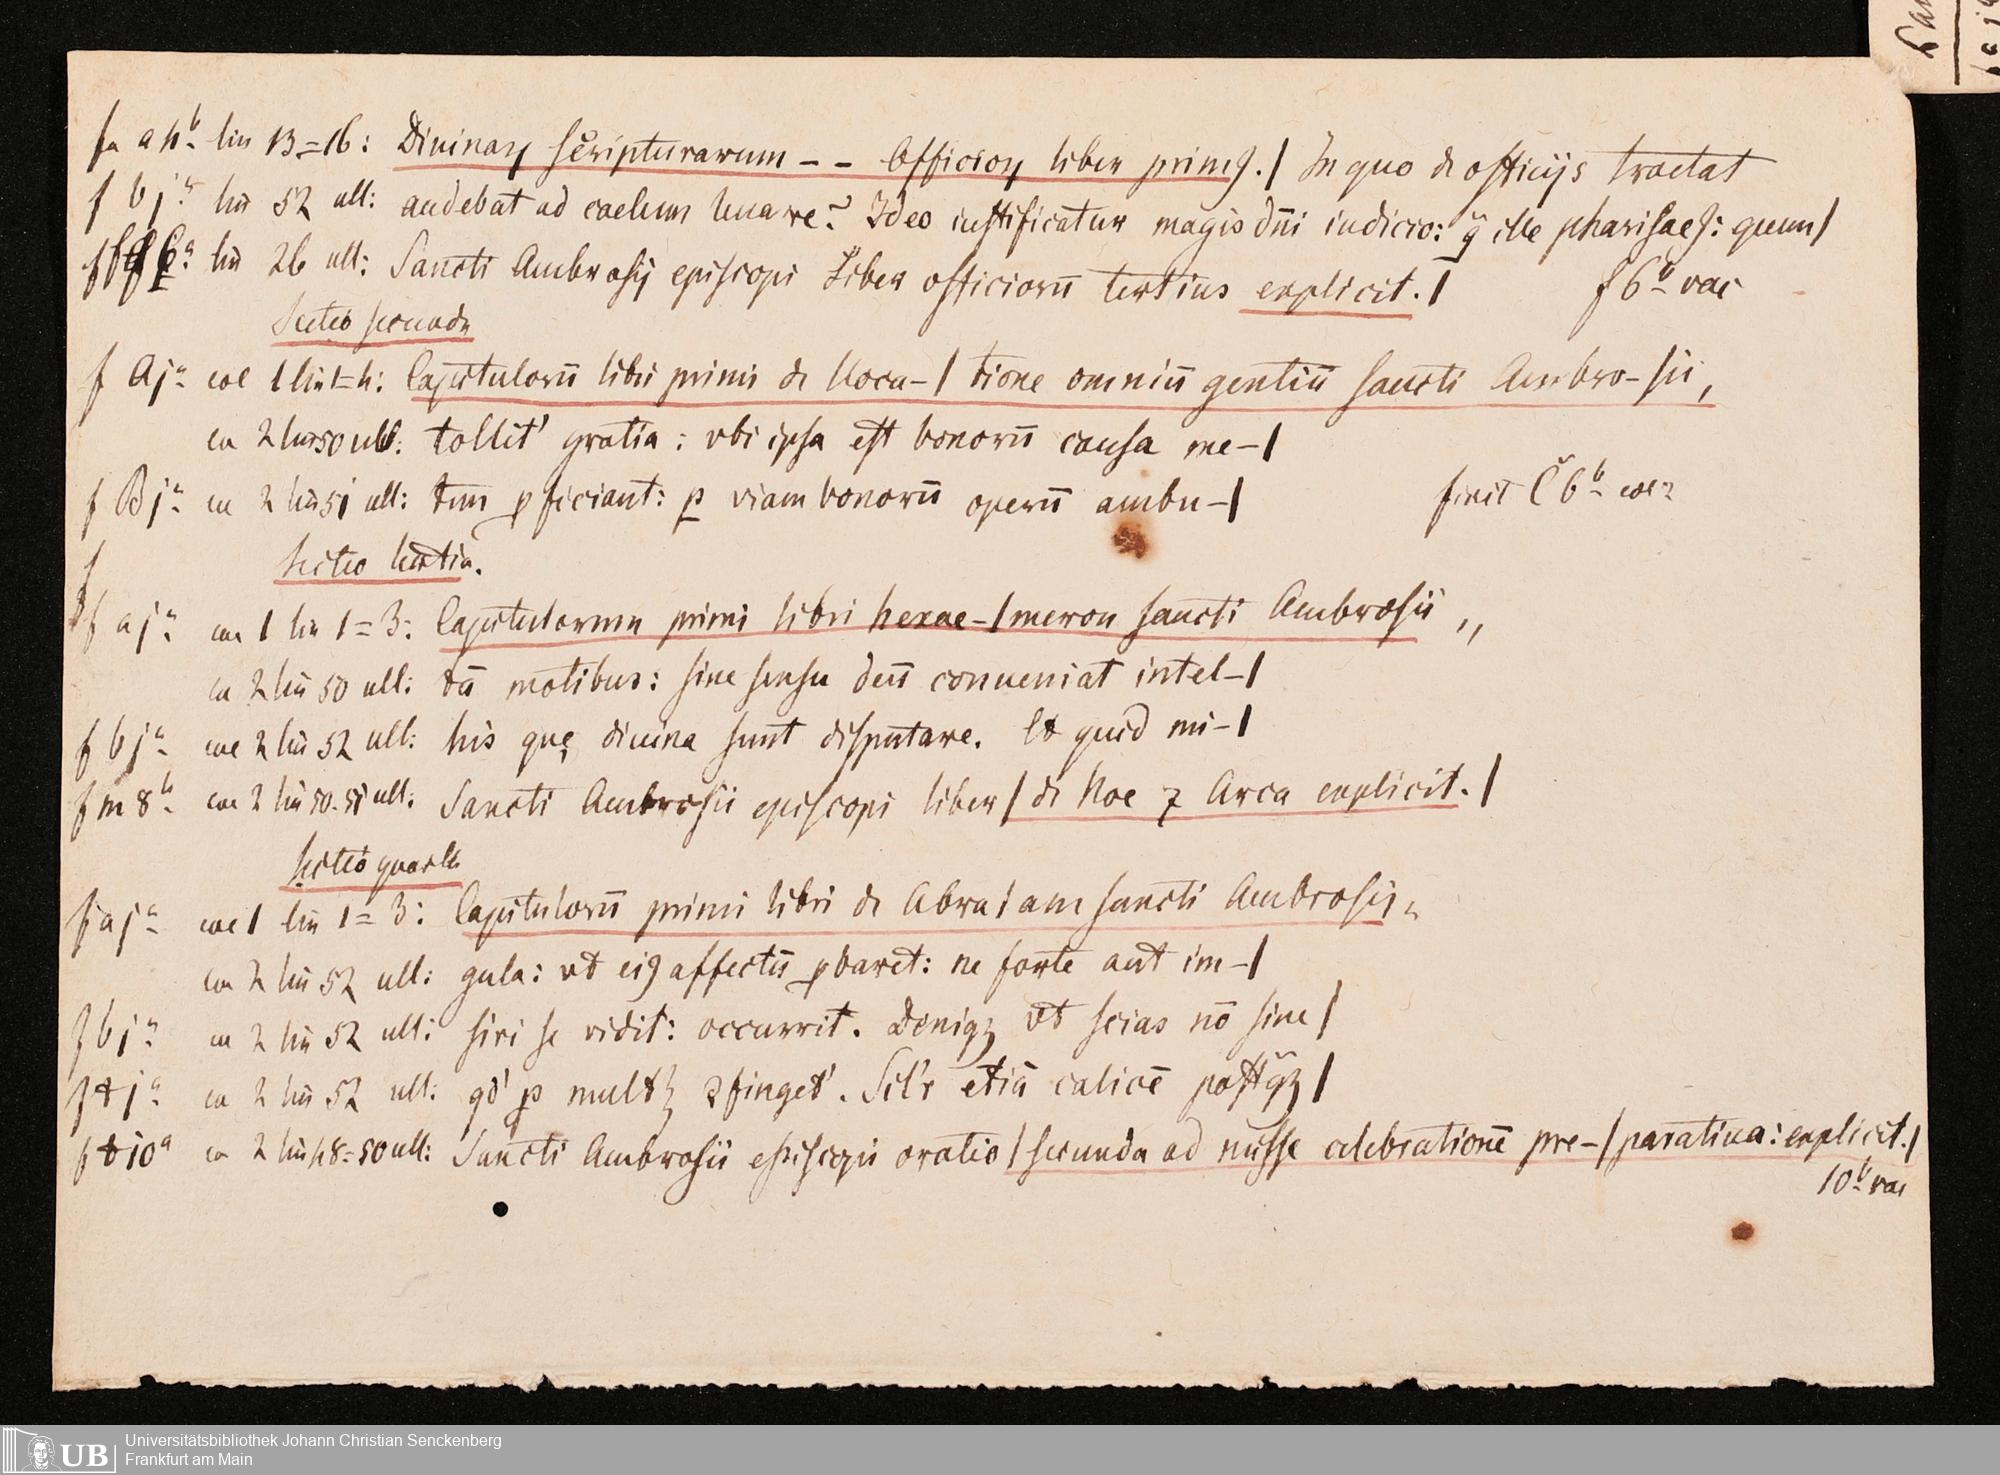 f a 4ᵇ lin 13=16: Diuinaꝝ scripturarum - - Officioꝝ liber primꝰ. | In quo de officijs tractat
f b jᵃ lin 52 ult: audebat ad caelum leuare? Ideo iustificatur magis dn̄i iudicio: q̄ ille pharisaeꝰ: quum |
6ᵃ: lin 26 ult: Sancti Ambrosij episcopi Liber officiorū tertius explicit. | f 6ᵇ vac
Sectio secunda
f A jᵃ col 1 lin 1=4: Capitulorū libri primi de Uoca-| tione omniū gentiū sancti Ambro-sii,
co 2 lin 50 ult: tollit' gratia: vbi ipsa est bonorū causa me-|
f B jᵃ co 2 lin 51 ult: tūm ꝓficiant: ꝑ viam bonorū operū ambu-| finit C 6ᵇ col 2
f
Sectio tertia.
f a jᵃ col 1 lin 1=3: Capitulorum primi libri hexae-|meron sancti Ambrosii,,
co 2 lin 50 ult: tā motibus: sine sensu deū conueniat intel-|
f b jᵃ col 2 lin 52 ult: his quę diuina sunt disputare. Et quid mi-|
f m 8ᵇ col 2 lin 50-51 ult: Sancti Ambrosii episcopi liber | de Noe ⁊ Arca explicit. |
Sectio quarta
f a jᵃ col 1 lin 1=3: Capitulorū primi libri de Abra|am sancti Ambrosij,
co 2 lin 52 ult: gula: vt eiꝰ affectū ꝓbaret: ne forte aut im-|
f b jᵃ co 2 lin 52 ult: siri se vidit: occurrit. Deniqꝫ vt scias nō sine |
f t jᵃ co 2 lin 52 ult: qd' ꝑ multꝫ ꝯfinget'. Sil'r etiā calicē postqꝫ |
f t 10ᵃ co 2 lin 48=50 ult: Sancti Ambrosii episcopi oratio | secunda ad misse celebrationē pre-| paratiua: explicit. |
10ᵇ vac
UB Universitätsbibliothek Johann Christian Senckenberg
Frankfurt am Main